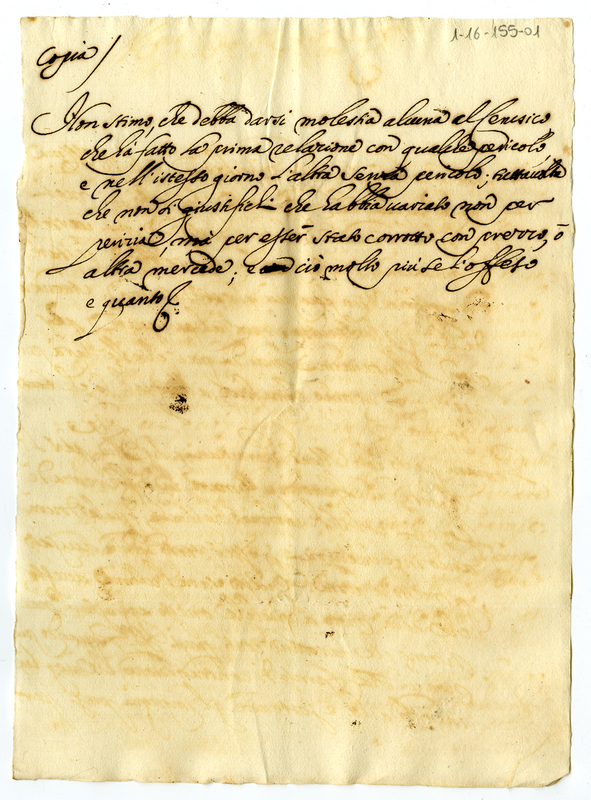 1-16-155-01
Copia /
Non stimo, che debba darsi molestia alcuna al Cerusico
che hà fatto la prima relazione con qualche pericolo
e nell'istesso giorno l'altra senza pericolo; tuttavolta
che non si giustifichi che habbia variato non per
perizia, mà per esser stato corrotto con prezzo, ò
altra mercede; e ciò molto più se l'offeso
e quanto